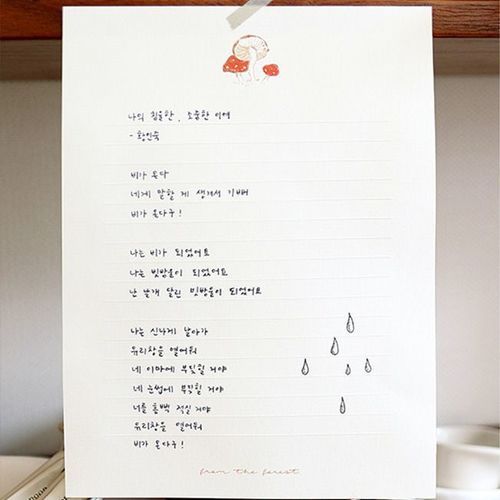 나의 침울한, 소중한 이여
- 황인숙
비가 온다
네게 말할 게 생겨서 기뻐
비가 온다구!
나는 비가 되었어요
나는 빗방울이 되었어요
난 날개 달린 빗방울이 되었어요
나는 신나게 날아가
유리창을 열어둬
네 이마에 부딪힐 거야
네 눈썹에 부딪힐 거야
너를 흠뻑 적실 거야
유리창을 열어둬
비가 온다구!
from the forest